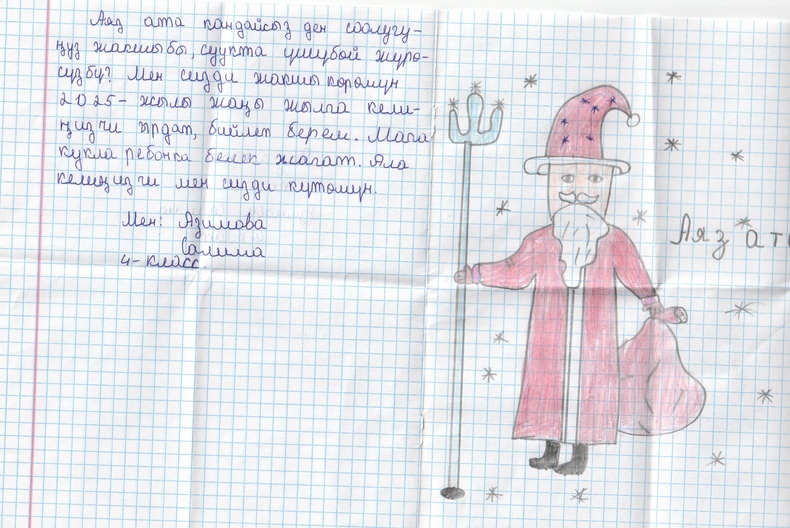 Аяз ата кандайсыз ден соолугу-
ңуз жакшыбы, суукта үшүбөй жүрө-
сүзбү? Мен сизди жакшы көрөмүн
2025-жылы жаңы жылга кели-
ңизчи ырдап, бийлеп берем. Мага
кукла ребонка белек жагат. Ала
келиңизчи мен сизди күтөмүн.
Мен: Азимова
Салима
4-класс.
Аяз ат